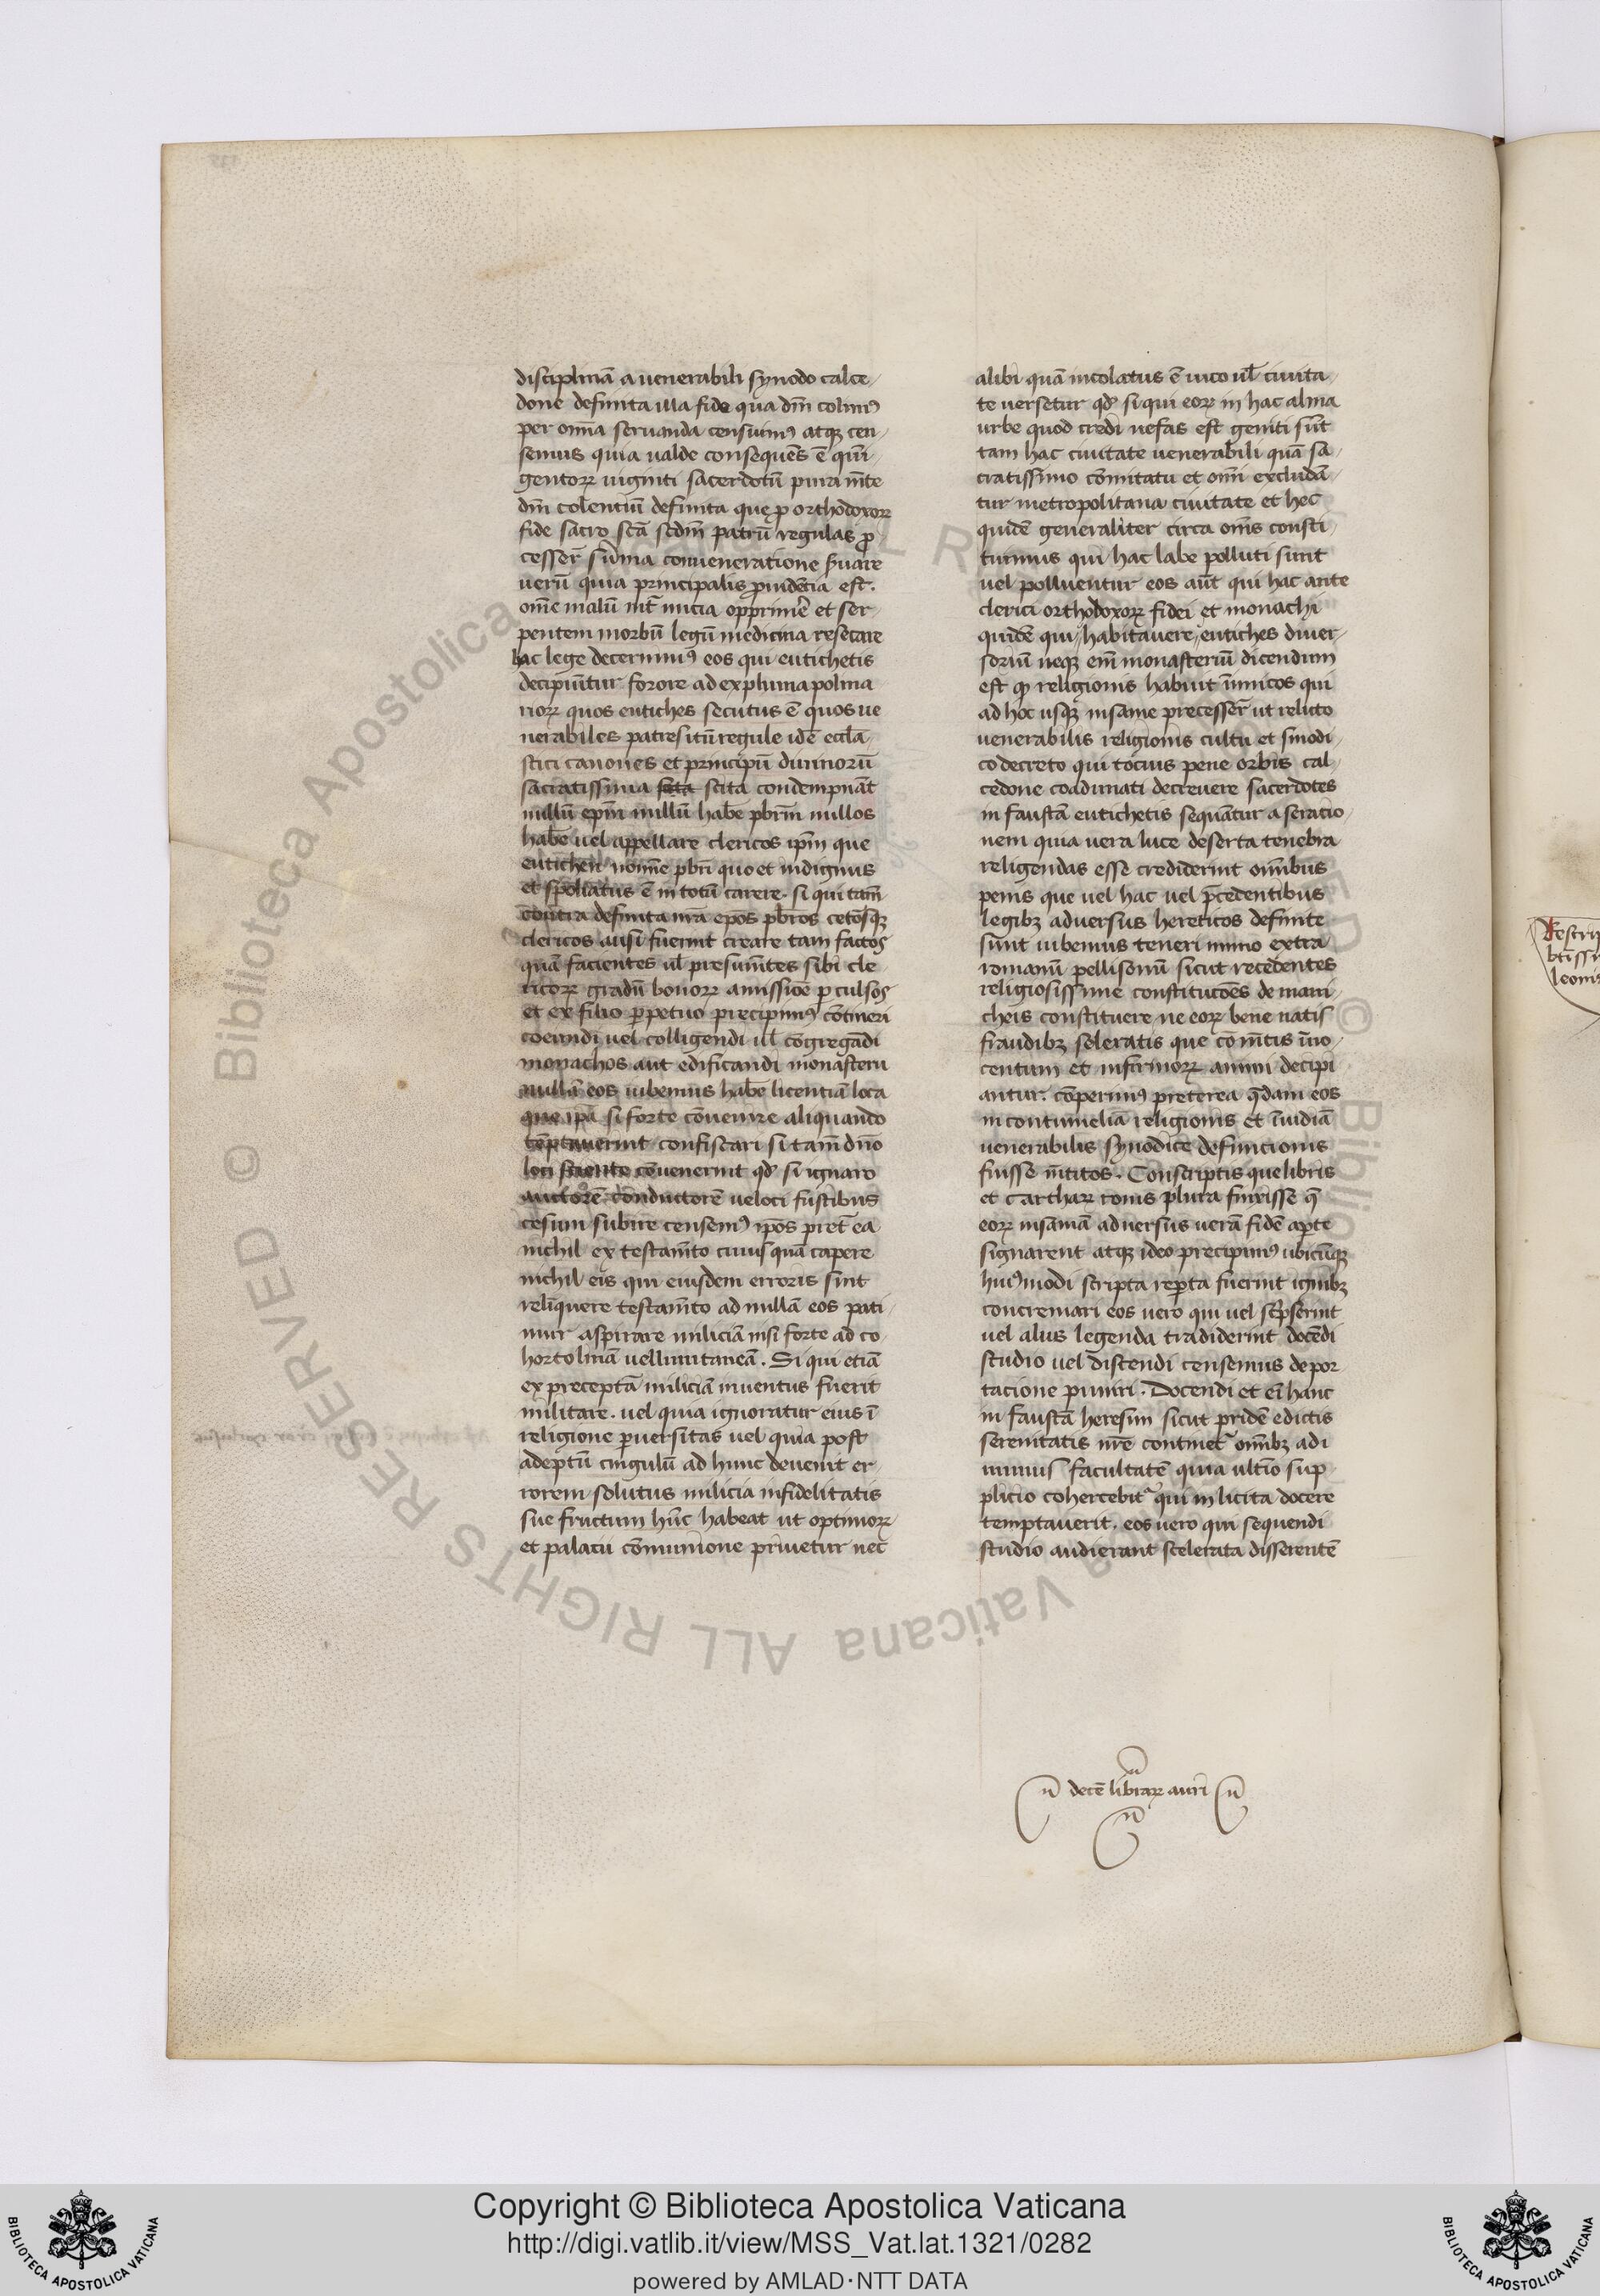 disciplinā a venerabili synodo calce-
done definita illa fide qua dm̄ colimꝰ
per om̄ia servanda censuimꝰ atqꝫ cen-
semus quia valde consequēs ē qui-
gentorꝝ viginti sacerdotū pura mēte
dm̄ colentiū definita que ꝓ orthodoxorꝝ
fide sacro scā scdm̄ patrū regulas ꝓ
cesser̄ sūma conveneratione ẜuare
verū quia principalis ꝓvidētia est.
om̄e malū int̄ inicia opprimē et ser-
pentem morbū legū medicina resecare
hac lege decernimꝰ eos qui eutichetis
decipiūtur forore ad expluma polina
riorꝝ quos eutiches secutus ē quos ve
nerabiles patres itū regule idē eccl̄a-
stici canones et principū divinorū
sacratissima scita condempnāt
nullū ep̄m nullū habē pbr̄m nullos
habē vel appellare clericos ip̄m que
eutichen nomīe pbr̄i quo et indignus
et spoliatus ē in totū carere. si qui tam̄
contra definita nr̄a epōs pbr̄os cetōsqꝫ
clericos ausi fuerint creare tam factos
quā facientes vl̄ presumētes sibi cle
ricorꝝ gradū bonorꝝ amissiōe ꝑculsos
et ex filio ꝑpetuo precipimꝰ cōtineri
coeundi vel colligendi vl̄ cōgregādi
monachos aut edificandi monasterii
nullā eos iubemus habē licentiā loca
que ip̄a si forte cōvenire aliquando
tēptaverint confiscari si tam̄ dn̄o
loci sciente cōvenerint qd̛ si ignaro
auctorē conductorē ve loci fustibus
cesum subire censemꝰ ip̄os pret̄ ea
nichil ex testamēto cuiusquā capere
nichil eis qui eiusdem erroris sint
reliquere testamēto ad nullā eos pati-
mur aspirare miliciā nisi forte ad co-
hortolinā vel limitaneā. Si qui etiā
ex preceptā miliciā inventus fuerit
militare. vel quia ignoratur eius ī
religione ꝑversitas vel quia post
adeptū cingulū ad hunc devenit er-
rorem solutus milicia infidelitatis
sue fructum hūc habeat ut optimorꝝ
et palacii cōmunione privetur nec
alibi quā incolatus ē vico vl̄ civita-
te versetur qd̛ si qui eorꝝ in hac alma
urbe quod credi nefas est geniti sūt
tam hac civitate venerabili quā sa-
cratissimo cōmitatu et om̄i excludā-
tur metropolitana civitate et hec
quidē generaliter circa om̄s consti-
tuimus qui hac labe polluti sunt
vel polluentur eos aūt qui hac ante
clerici orthodoxorꝝ fidei et monachi
quidē qui habitavere eutiches diver-
soriū neqꝫ em̄ monasteriū dicendum
est qꝫ religionis habuit īimicos qui
ad hoc usqꝫ insanie precesser̄ ut relicto
venerabilis religionis cultu et sinodi-
co decreto qui tocius pene orbis cal-
cedone coadunati decrevere sacerdotes
in faustā eutichetis sequātur aseracio-
nem quia vera luce deserta tenebra
religendas esse crediderint om̄ibus
penis que vel hac vel p̄cedentibus
legibꝫ adversus hereticos definite
sunt iubemus teneri immo extra
romanū pellisonū sicut recedentes
religiosissime constitucōes de mani-
cheis constituere ne eorꝝ bene natis
fraudibꝫ seleratis que cō mētis īno-
centum et infirmorꝝ animi decipi
antur. cōperimꝰ preterea q̄dam eos
in contumeliā religionis et īvidiā
venerabilis synodice defuncionis
fuisse mētitos. Conscriptis que libris
et carthaꝝ tonis plura finxisse q̄
eorꝝ insaniā adversus verā fidē aꝑte
signarent atqꝫ ideo precipimꝰ ubicūqꝫ
huiꝰmodi scripta reꝑta fuerint ignibꝫ
concremari eos vero qui vel sc̄pserint
vel aliis legenda tradiderint docēdi
studio vel discendi censemus depor-
tacione puniri. Docendi et eī hanc
in faustā heresim sicut pridē edictis
serenitatis nr̄e continet᷑ om̄ibꝫ adi
mimus facultatē quia ultīo sup-
plicio cohercebit᷑ qui in licita docere
temptaverit. eos vero qui sequendi
studio audierant scelerata disserentē
decē librarꝝ auri
Rescrip
btissi
leonis
Copyright © Biblioteca Apostolica Vaticana
http://digi.vatlib.it/view/MSS_Vat.lat.1321/0282
powered by AMLAD·NTT DATA
BIBLIOTECA APOSTOLICA VATICANA
BIBLIOTECA APOSTOLICA VATICANA
© Biblioteca Apostolica Vaticana ALL RIGHTS RESERVED